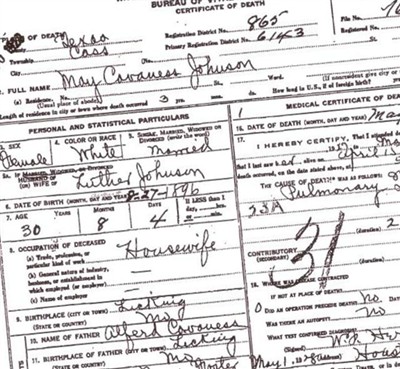 BUREAU OF VITAL
CERTIFICATE OF DEATH
OF DEATH Texas Registration District No. 865 File No. 76
County Cass Primary Registration District No. 6143 Registered No.
Township
City No. St.
2. FULL NAME May Cavaness Johnson
(a) Residence, No. St. Ward.
(Usual place of abode) (If nonresident give city or
Length of residence in city or town where death occurred 3 yrs. mos. How long in U.S., if of foreign birth?
PERSONAL AND STATISTICAL PARTICULARS
3. SEX 4. COLOR OR RACE 5. SINGLE, MARRIED, WIDOWED OR DIVORCED (write the word)
Female White Married
5a. IF MARRIED, WIDOWED, OR DIVORCED
HUSBAND OF
(or) WIFE OF Luther Johnson
6. DATE OF BIRTH (MONTH, DAY AND YEAR) 8-27-1896
7. AGE YEARS MONTHS DAYS IF LESS than 1
30 8 4 day, hrs.
min.
8. OCCUPATION OF DECEASED
(a) Trade, profession, or
particular kind of work Housewife
(b) General nature of industry,
business, or establishment in
which employed (or employer)
(c) Name of employer
9. BIRTHPLACE (CITY OR TOWN) Licking
(STATE OR COUNTRY) Mo
10. NAME OF FATHER Alfred Cavaness
11. BIRTHPLACE OF FATHER (CITY OR TOWN) Licking
(STATE OR COUNTRY) Mo
MEDICAL CERTIFICATE OF DEATH
16. DATE OF DEATH (MONTH, DAY AND YEAR) May
17.
I HEREBY CERTIFY, That I attended
that I last saw h er alive on April
death occurred, on the date stated above, at
THE CAUSE OF DEATH WAS AS FOLLOWS:
Pulmonary
23A
31
(duration)
CONTRIBUTORY
(SECONDARY)
(duration)
18. WHERE WAS DISEASE CONTRACTED
IF NOT AT PLACE OF DEATH?
DID AN OPERATION PRECEDE DEATH? no DATE
WAS THERE AN AUTOPSY? no
WHAT TEST CONFIRMED DIAGNOSIS?
(Signed) W.R.
May 1, 1928 (Address) Houst